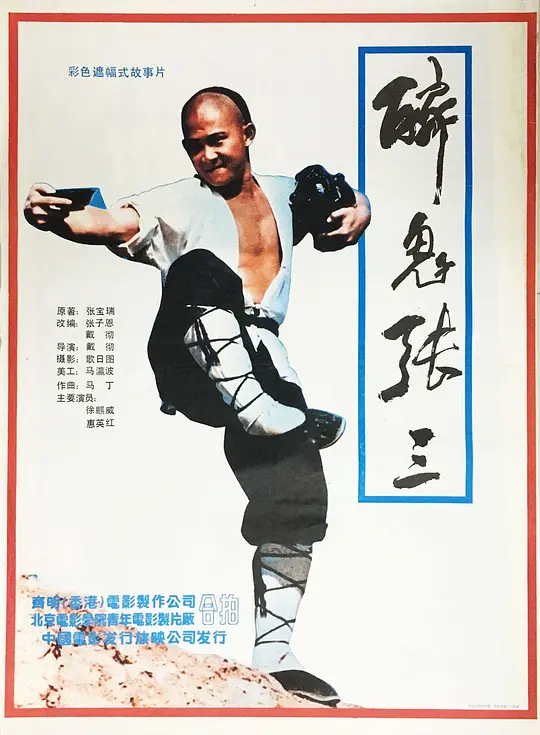 彩色遮幅式故事片
醉鬼张三
原著：张宝瑞
改编：张子恩
戴 彻
导演：戴 彻
摄影：歌日图
美工：马灜波
作曲：马 丁
主要演员：
徐麒威
惠英红
齊明(香港)電影製作公司
北京電影學院青年電影製片廠
合拍
中國電影发行放映公司发行